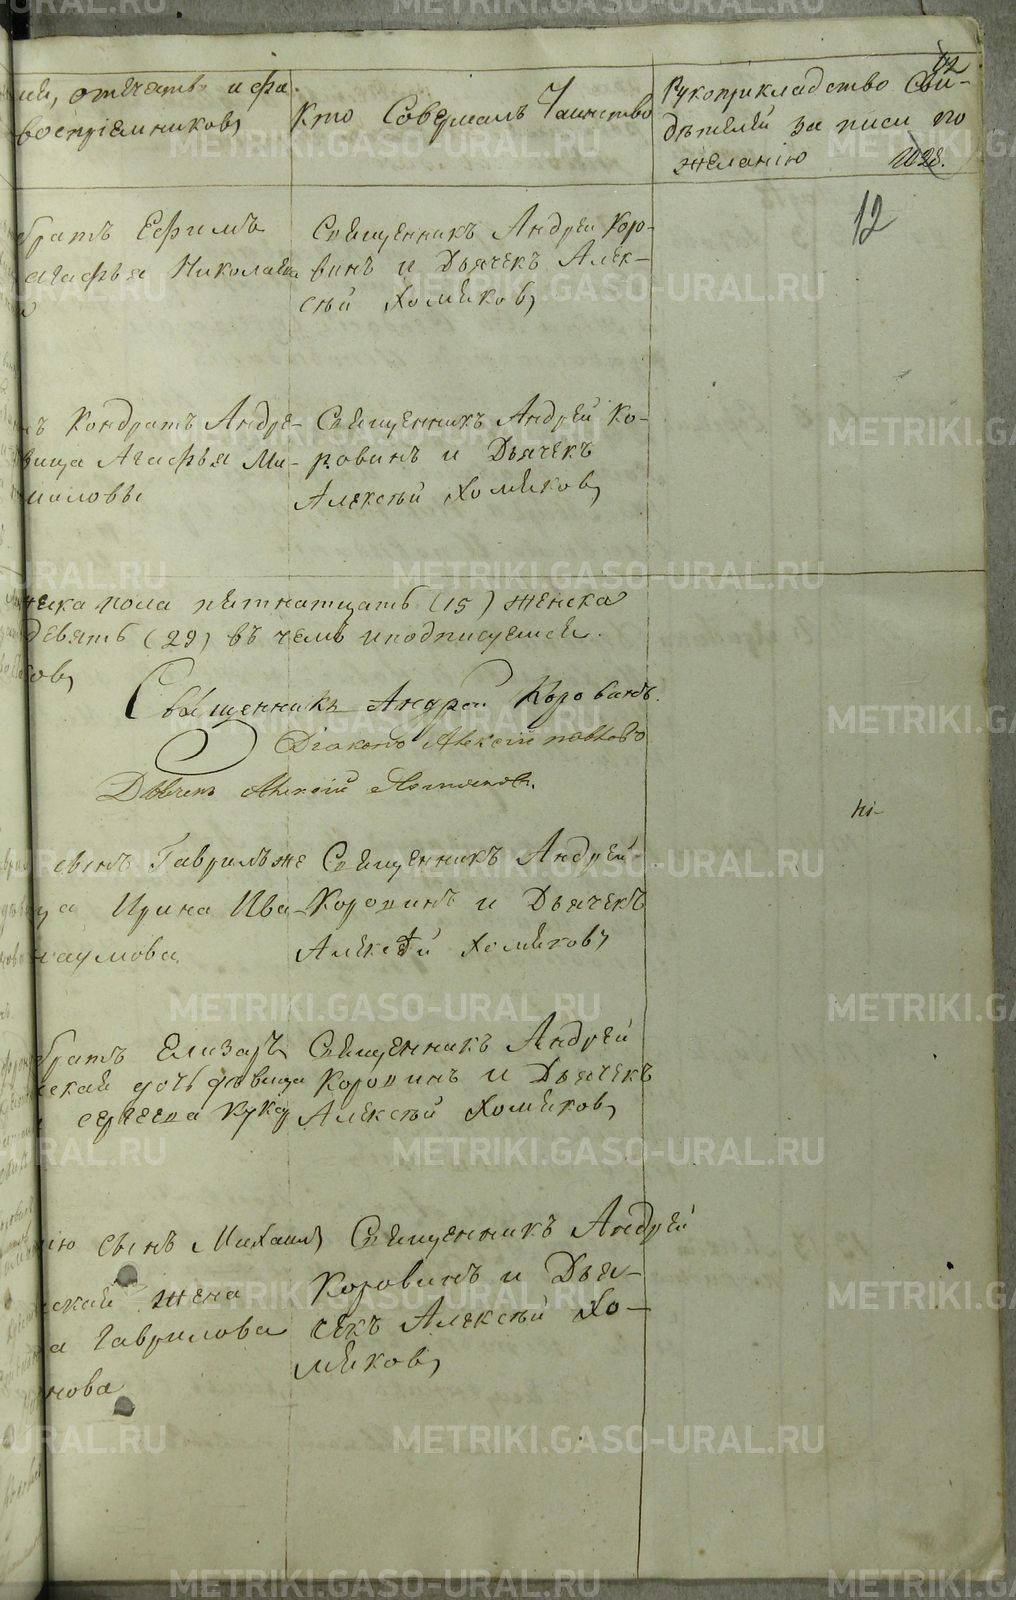 12
ие, отечетв и фа.
воспріемниковъ
Кто Совершалъ Таинство
Рукоприкладство Сви-
дѣтелей записи по
желанію
12
братъ Ефимъ
агафья Николаева
Священникъ Андрей Коро-
винъ и Дьячекъ Алек-
сѣй Хомяковъ
ъ Кондратъ Андре-
вица Агафья Ми-
аиловы
Священникъ Андрей Ко-
ровинъ и Дьячекъ
Алексѣй Хомяковъ
жеска пола пятнатцать (15) женска
девять (29) въ чемъ иподписуемся.
ковъ
Священникъ Андрей Коровинъ.
Діаконъ Алексій
Дьячекъ Алексій Хомяковъ.
сынъ Гаврилъ же
ца Ирина Ива-
наумова
Священникъ Андрей
Коровинъ и Дьячекъ
Алексѣй Хомяковъ
братъ Елизаръ
ская дочь дѣвица
сергеева Кук
Священникъ Андрей
Коровинъ и Дьячекъ
Алексѣй Хомяковъ
ію сынъ Михаилъ
ская жена
а Гаврилова
нова
Священникъ Андрей
Коровинъ и Дья-
чекъ Алексѣй Хо-
мяковъ
METRIKI.GASO-URAL.RU